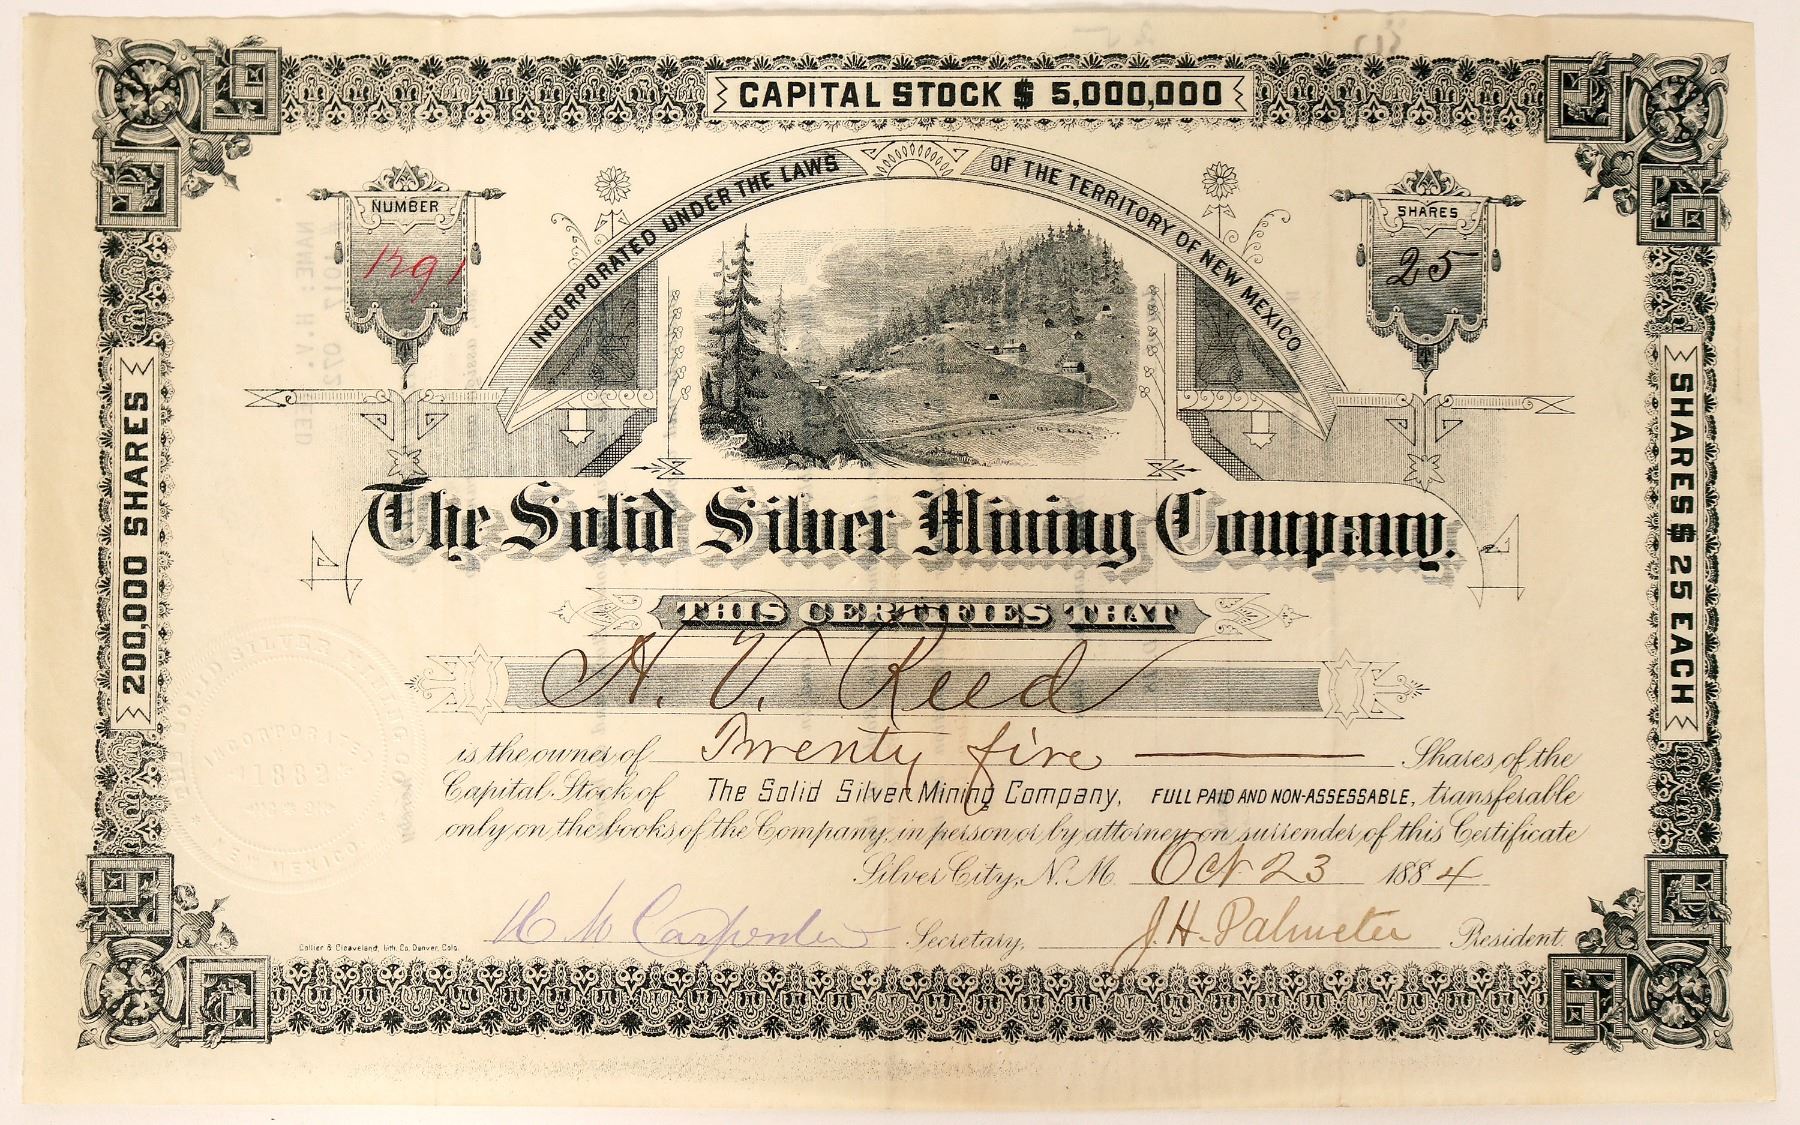 CAPITAL STOCK $ 5,000,000
INCORPORATED UNDER THE LAWS OF THE TERRITORY OF NEW MEXICO
NUMBER
SHARES
25
200,000 SHARES
SHARES $ 25 EACH
The Solid Silver Mining Company.
THIS CERTIFIES THAT
H. V. Reed
is the owner of Twenty five Shares of the
Capital Stock of The Solid Silver Mining Company, FULL PAID AND NON-ASSESSABLE, transferable
only on the books of the Company, in person or by attorney on surrender of this Certificate
Silver City, N. M. Oct 23 1884
Carpenter Secretary, J. H. Palmeter President.
Collier & Cleaveland, Lith. Co. Denver, Colo.
THE SOLID SILVER MINING CO.
INCORPORATED
NEW MEXICO.